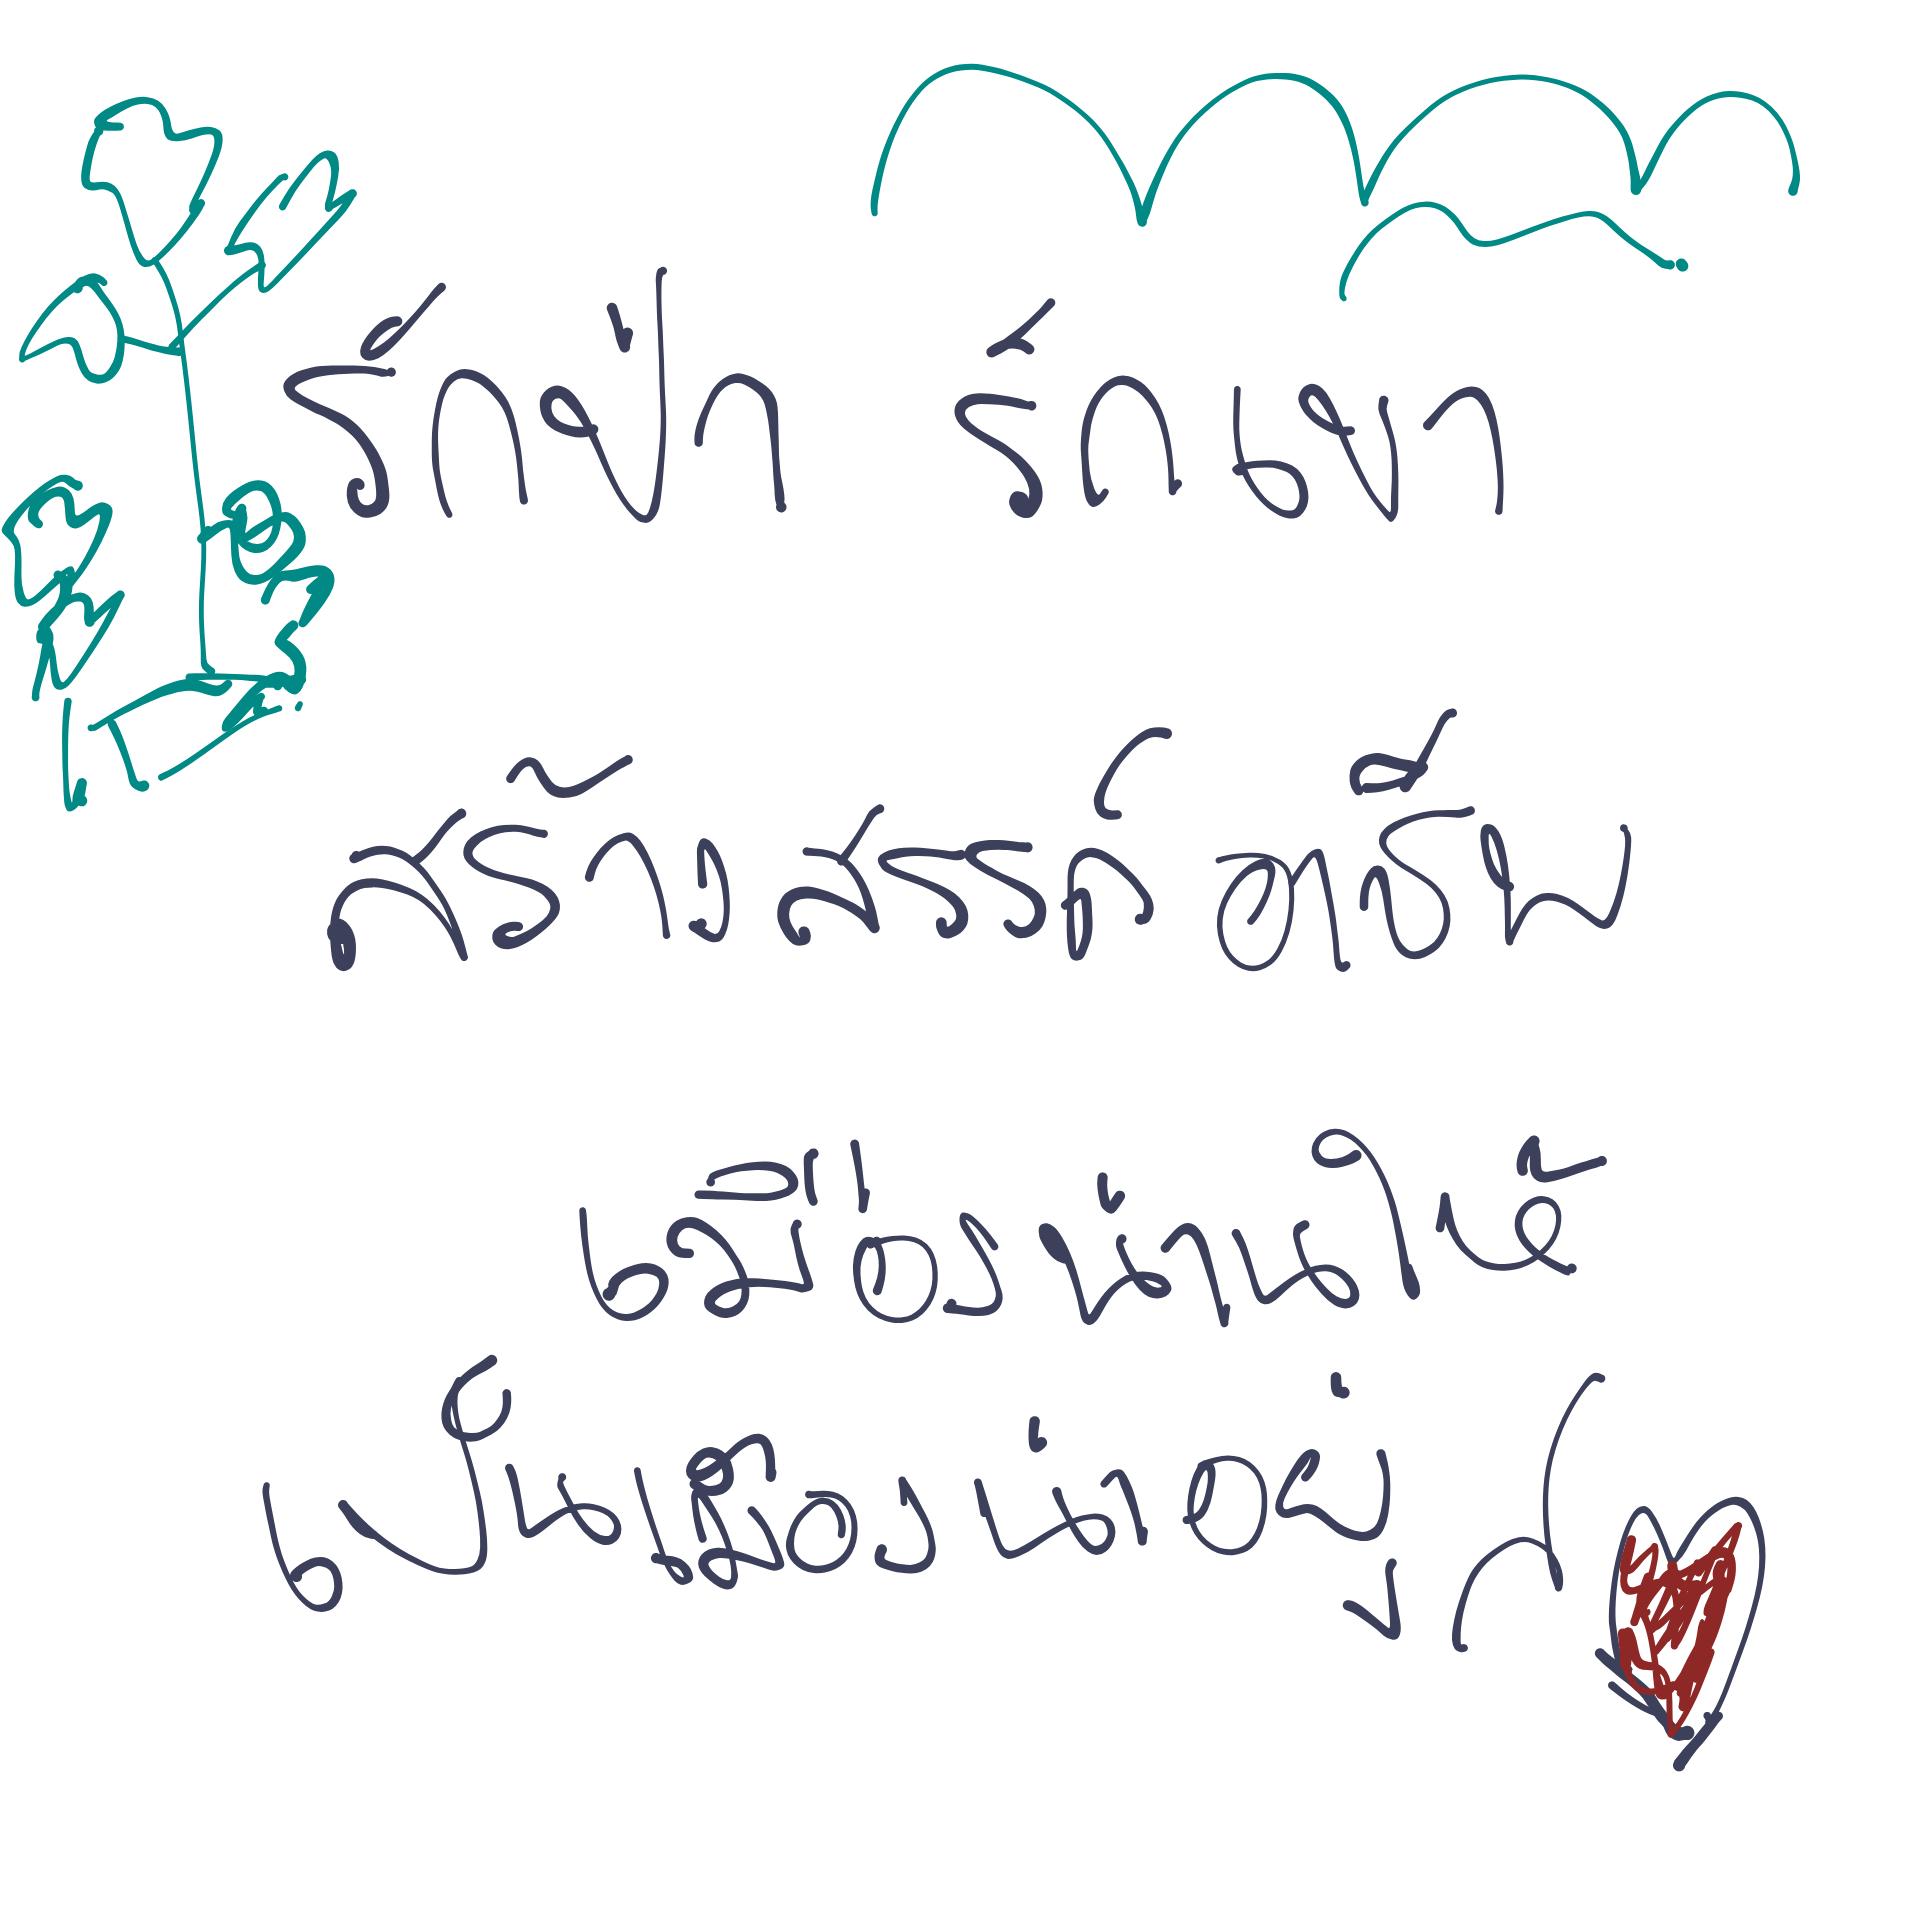 รักป่า รักเขา
สร้างสรรค์ อารีย์
เมืองน่านให้
เป็นเมืองน่าอยู่